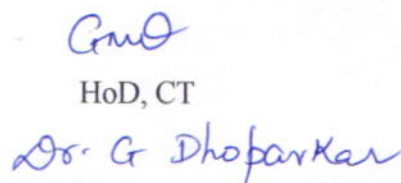 HoD, CT
Dr. G Dhoparkar